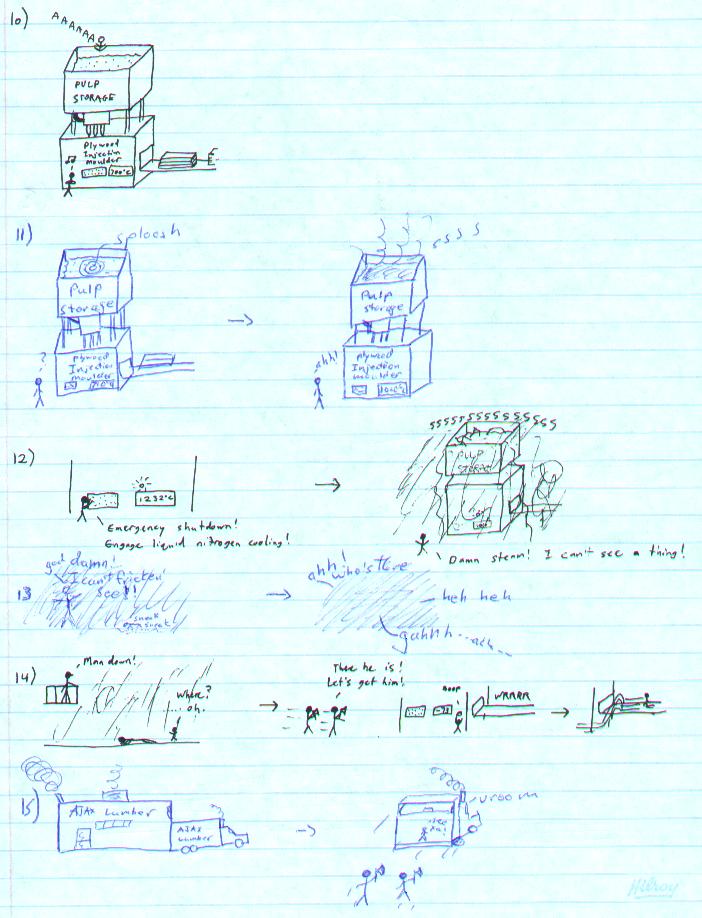 10)
AAAAAA
PULP
STORAGE
Plywood
Injection
moulder
700°C
11)
sploosh
Pulp
Storage
?
Plywood
Injection
moulder
→
ssss
Pulp
storage
ahh!
plywood
Injection
moulder
12)
1232°C
Emergency shutdown!
Engage liquid nitrogen cooling!
→
sssssssssssss
PULP
STORAGE
Damn steam! I can't see a thing!
13
god damn!
I can't frickin'
see!!
sneak
sneak
→
ahh!
who's there
heh heh
gahhh...ack...
14)
Man down!
Where?
...oh.
→
There he is!
Let's get him!
BOOP
WRRRR
→
15)
AJAX Lumber
AJAX
Lumber
→
vroom
Hilroy